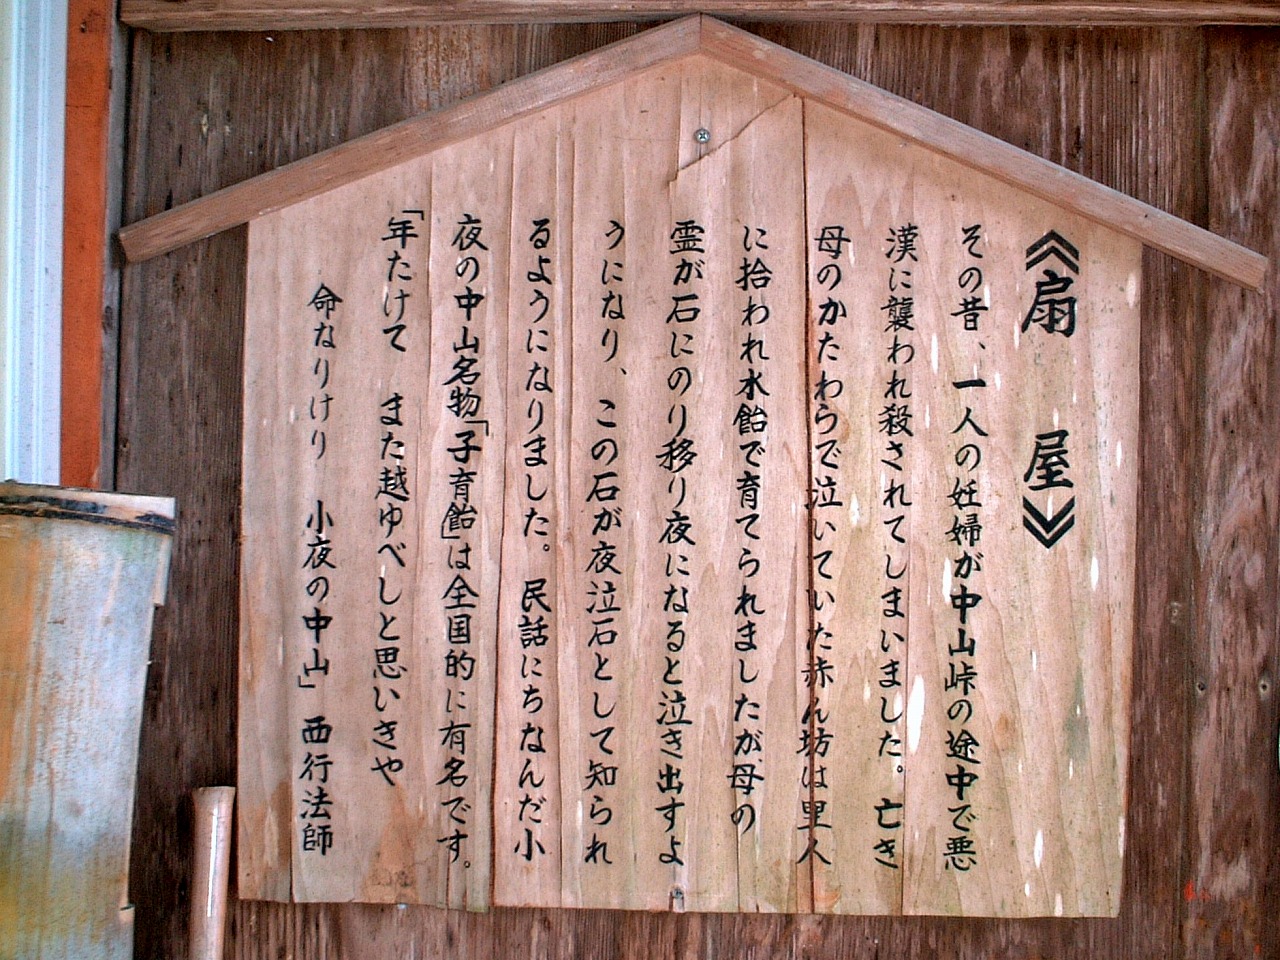 《扇屋》
その昔、一人の妊婦が中山峠の途中で悪
漢に襲われ殺されてしまいました。亡き
母のかたわらで泣いていた赤ん坊は里人
に拾われ水飴で育てられましたが母の
霊が石にのり移り夜になると泣き出すよ
うになり、この石が夜泣石として知られ
るようになりました。民話にちなんだ小
夜の中山名物「子育飴」は全国的に有名です。
「年たけて また越ゆべしと思いきや
命なりけり 小夜の中山」西行法師